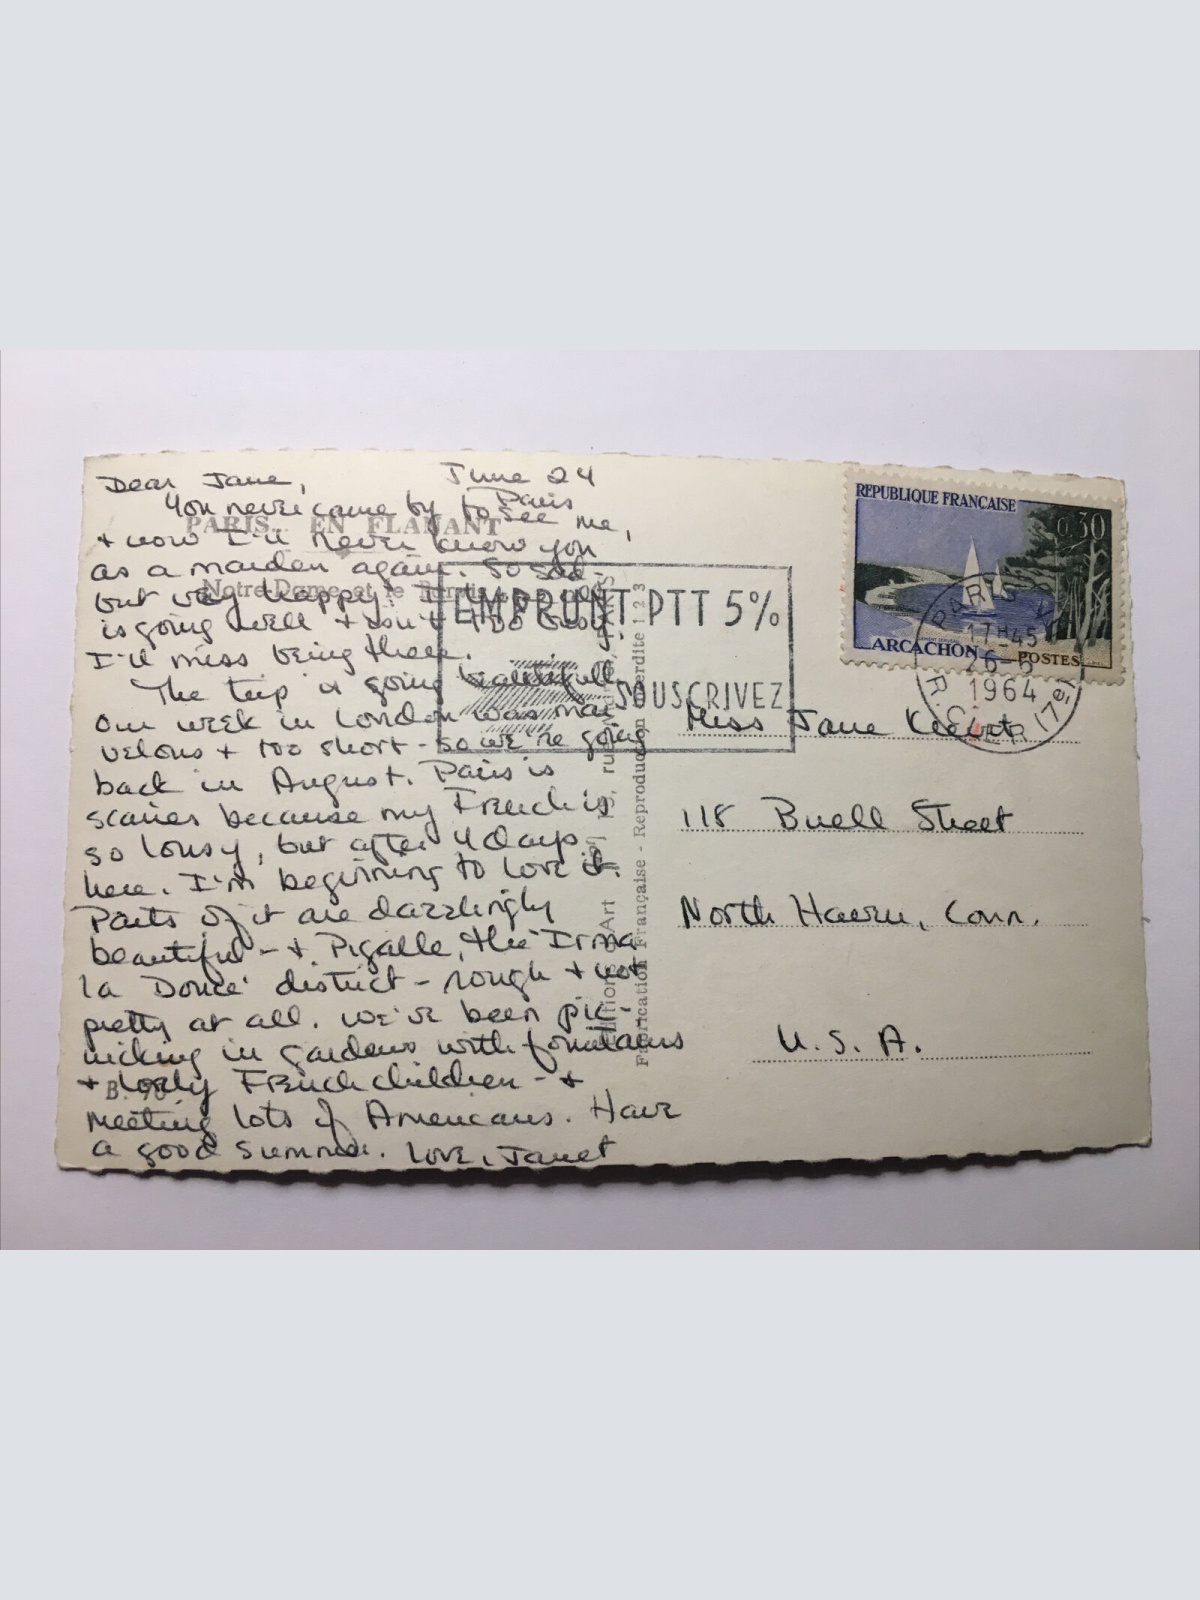 Dear Jane, June 24
Paris
You never came by to see me,
+ now I'll never know you
as a maiden again. So sad -
but very happy!
is going well +
I'll miss being there.
The trip is going beautifully.
Our week in London was mar-
velous + too short - so we're going
back in August. Paris is
scarier because my French is
so lousy, but after 4 days
here, I'm beginning to love it.
Parts of it are dazzlingly
beautiful - + Pigalle, the "Irma
la Douce" district - rough + not
pretty at all. We've been pic-
nicking in gardens with fountains
+ lovely French children - +
meeting lots of Americans. Have
a good summer. Love, Janet
PARIS EN FLANANT
Notre-Dame et le
B.
Fabrication Française - Reproduction interdite 1 2 3
EMPRUNT PTT 5%
SOUSCRIVEZ
REPUBLIQUE FRANÇAISE
0,30
ARCACHON POSTES
PARIS
17H45
26-6
1964
Miss Jane
118 Buell Street
North Haven, Conn.
U.S.A.